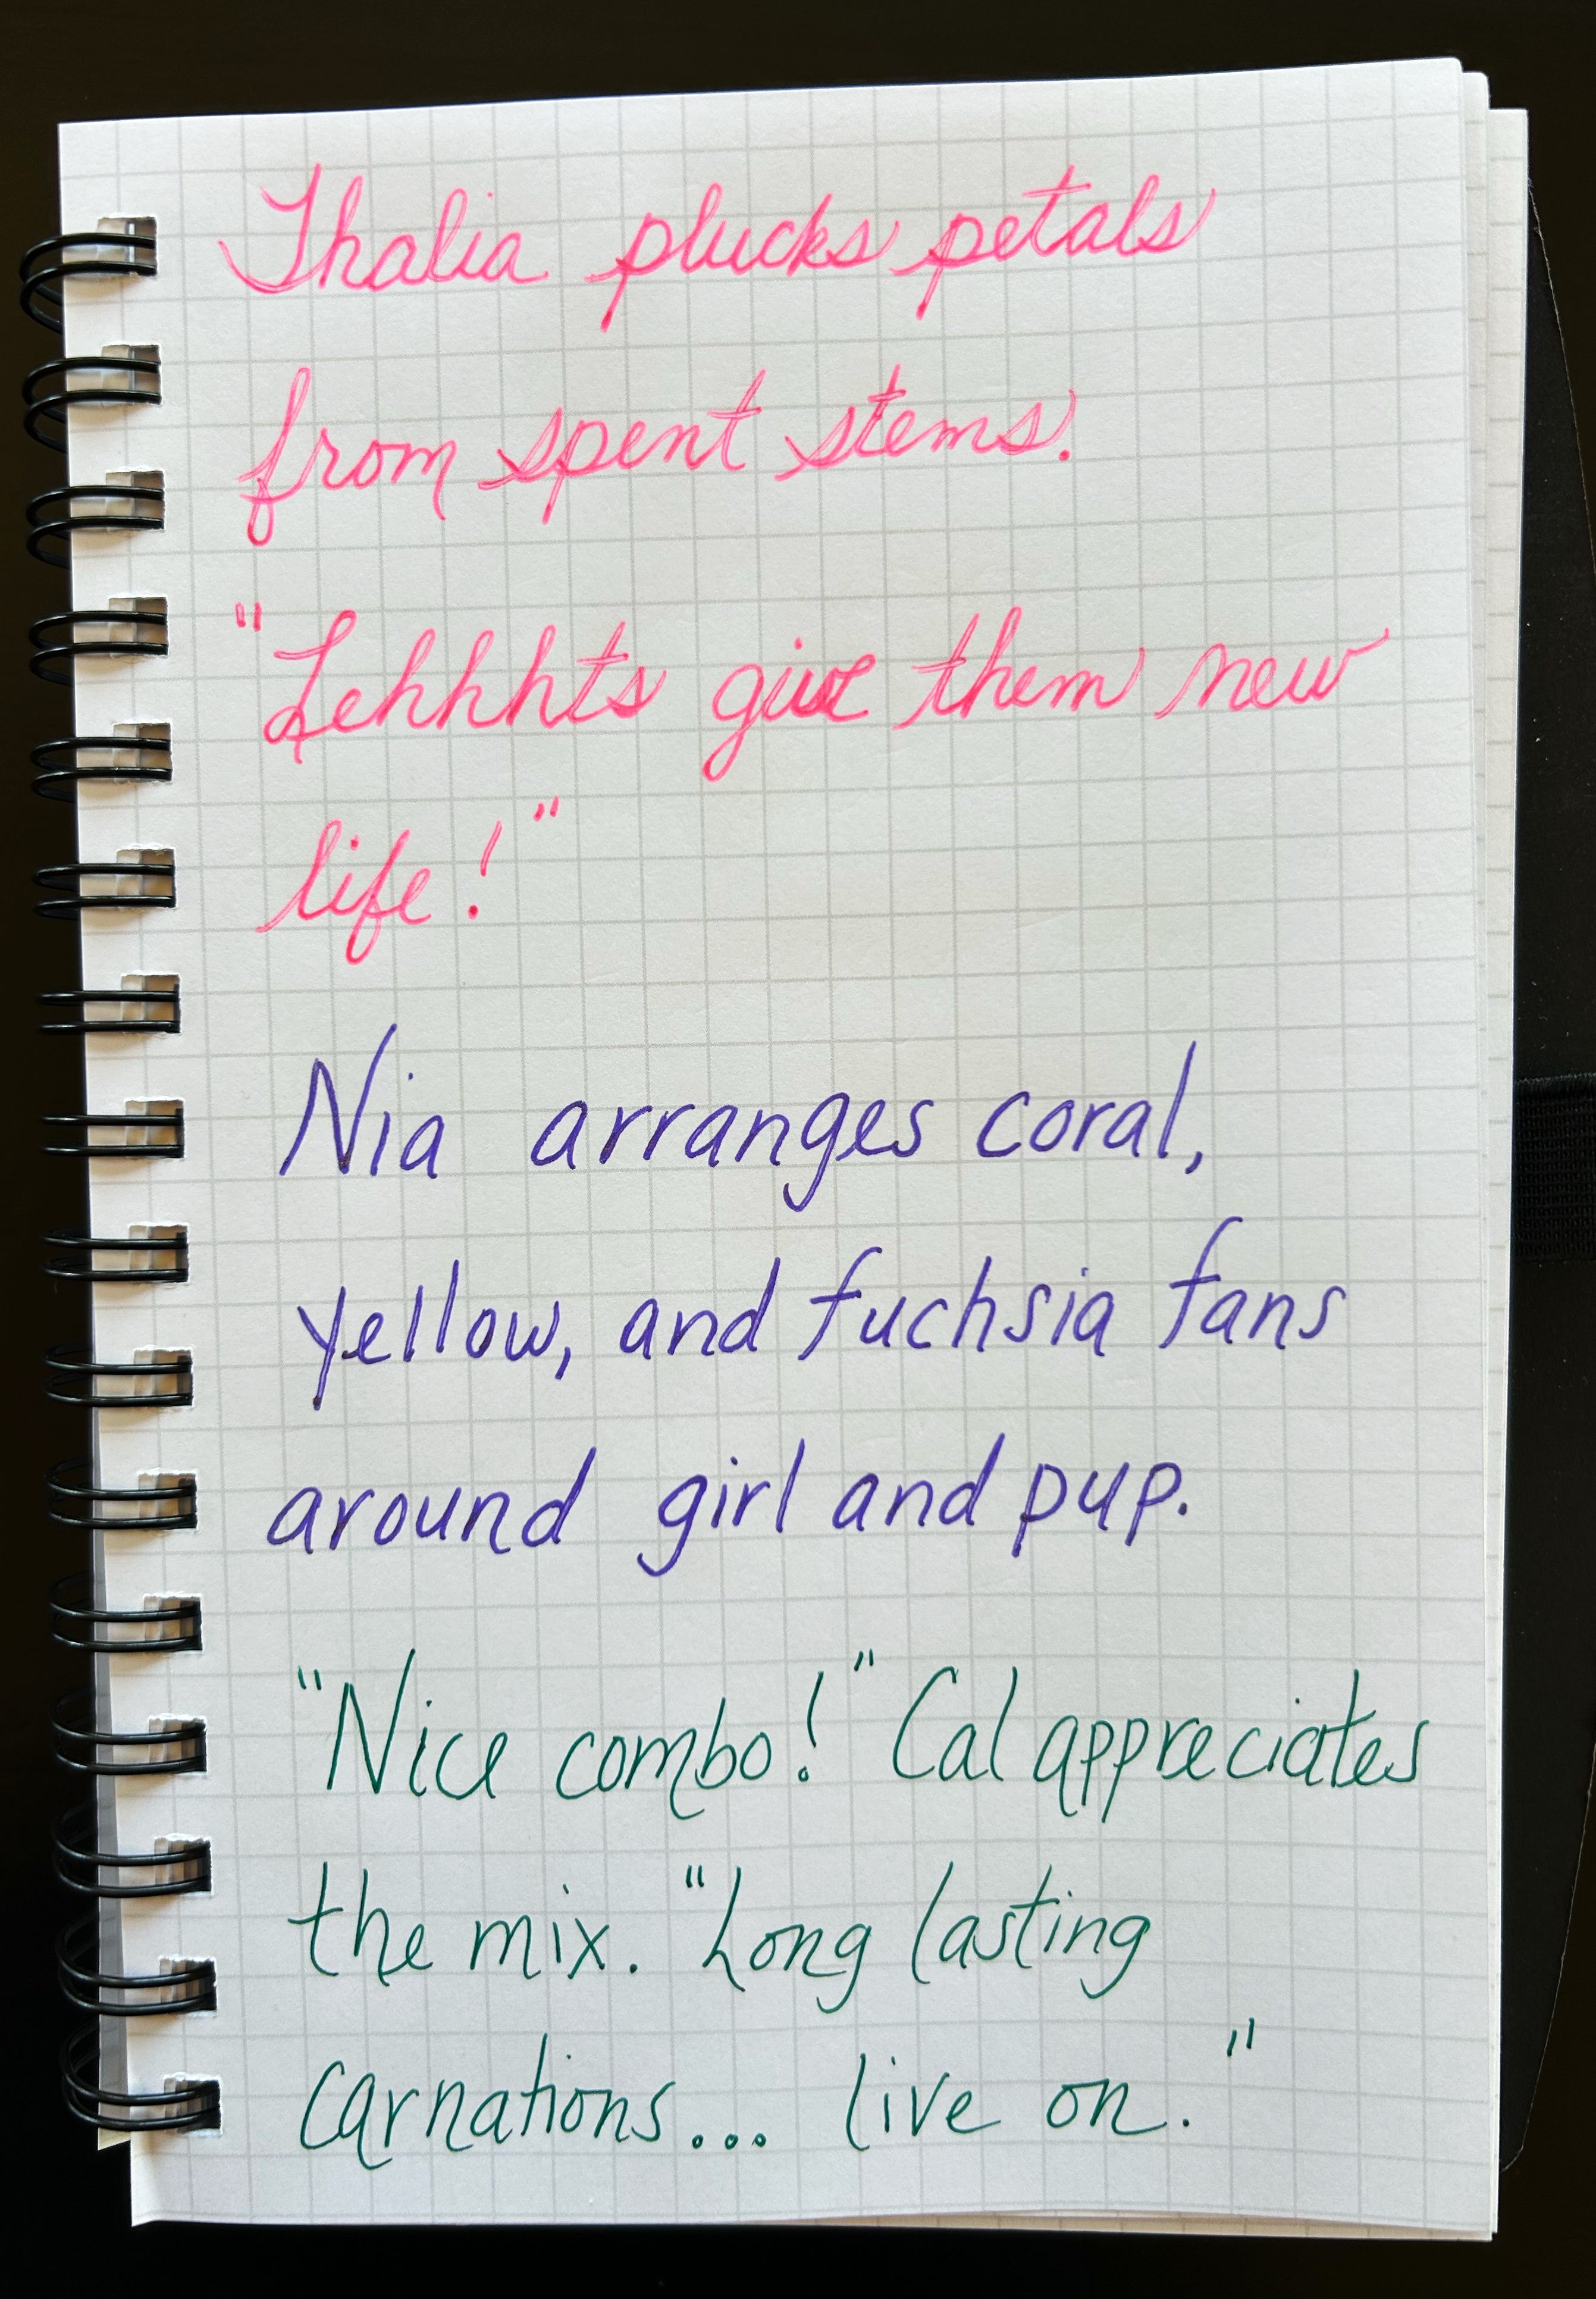 Thalia plucks petals
from spent stems.
"Lehhhts give them new
life!"
Nia arranges coral,
yellow, and fuchsia fans
around girl and pup.
"Nice combo!" Cal appreciates
the mix. "Long lasting
carnations... live on."